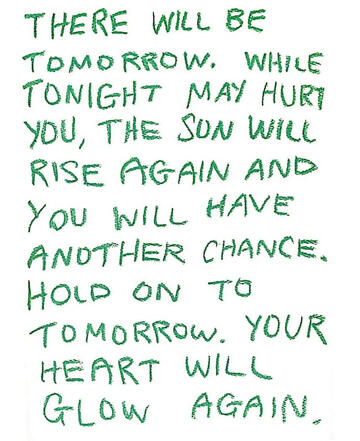 THERE WILL BE
TOMORROW. WHILE
TONIGHT MAY HURT
YOU, THE SUN WILL
RISE AGAIN AND
YOU WILL HAVE
ANOTHER CHANCE.
HOLD ON TO
TOMORROW. YOUR
HEART WILL
GLOW AGAIN.